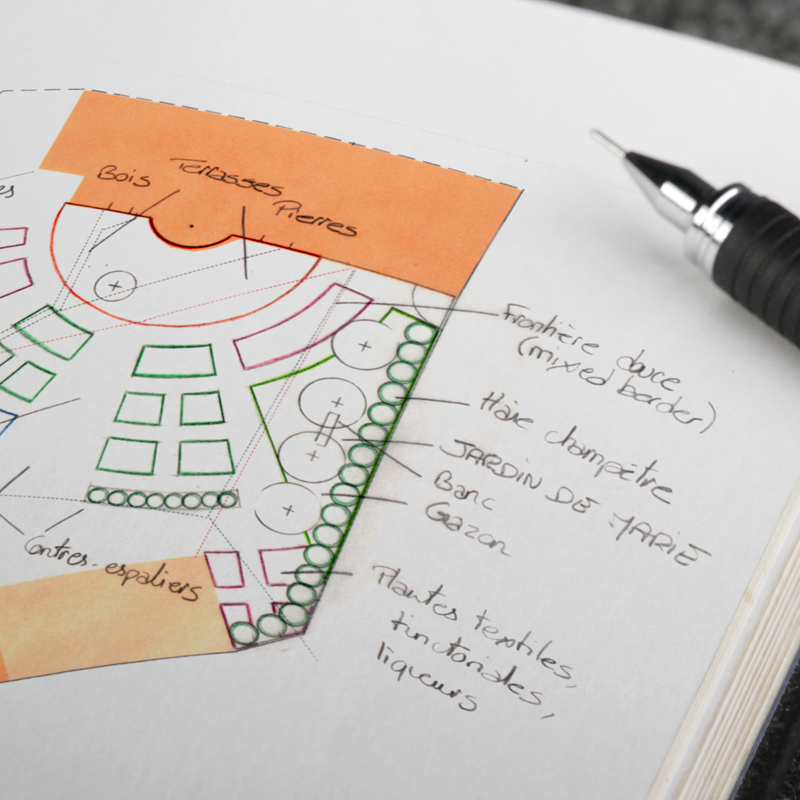 Bois
Terrasses
Pierres
Frontière douce
(mixed border)
Haie champêtre
JARDIN DE MARIE
Banc
Gazon
Contres-espaliers
Plantes textiles,
tinctoriales,
liqueurs